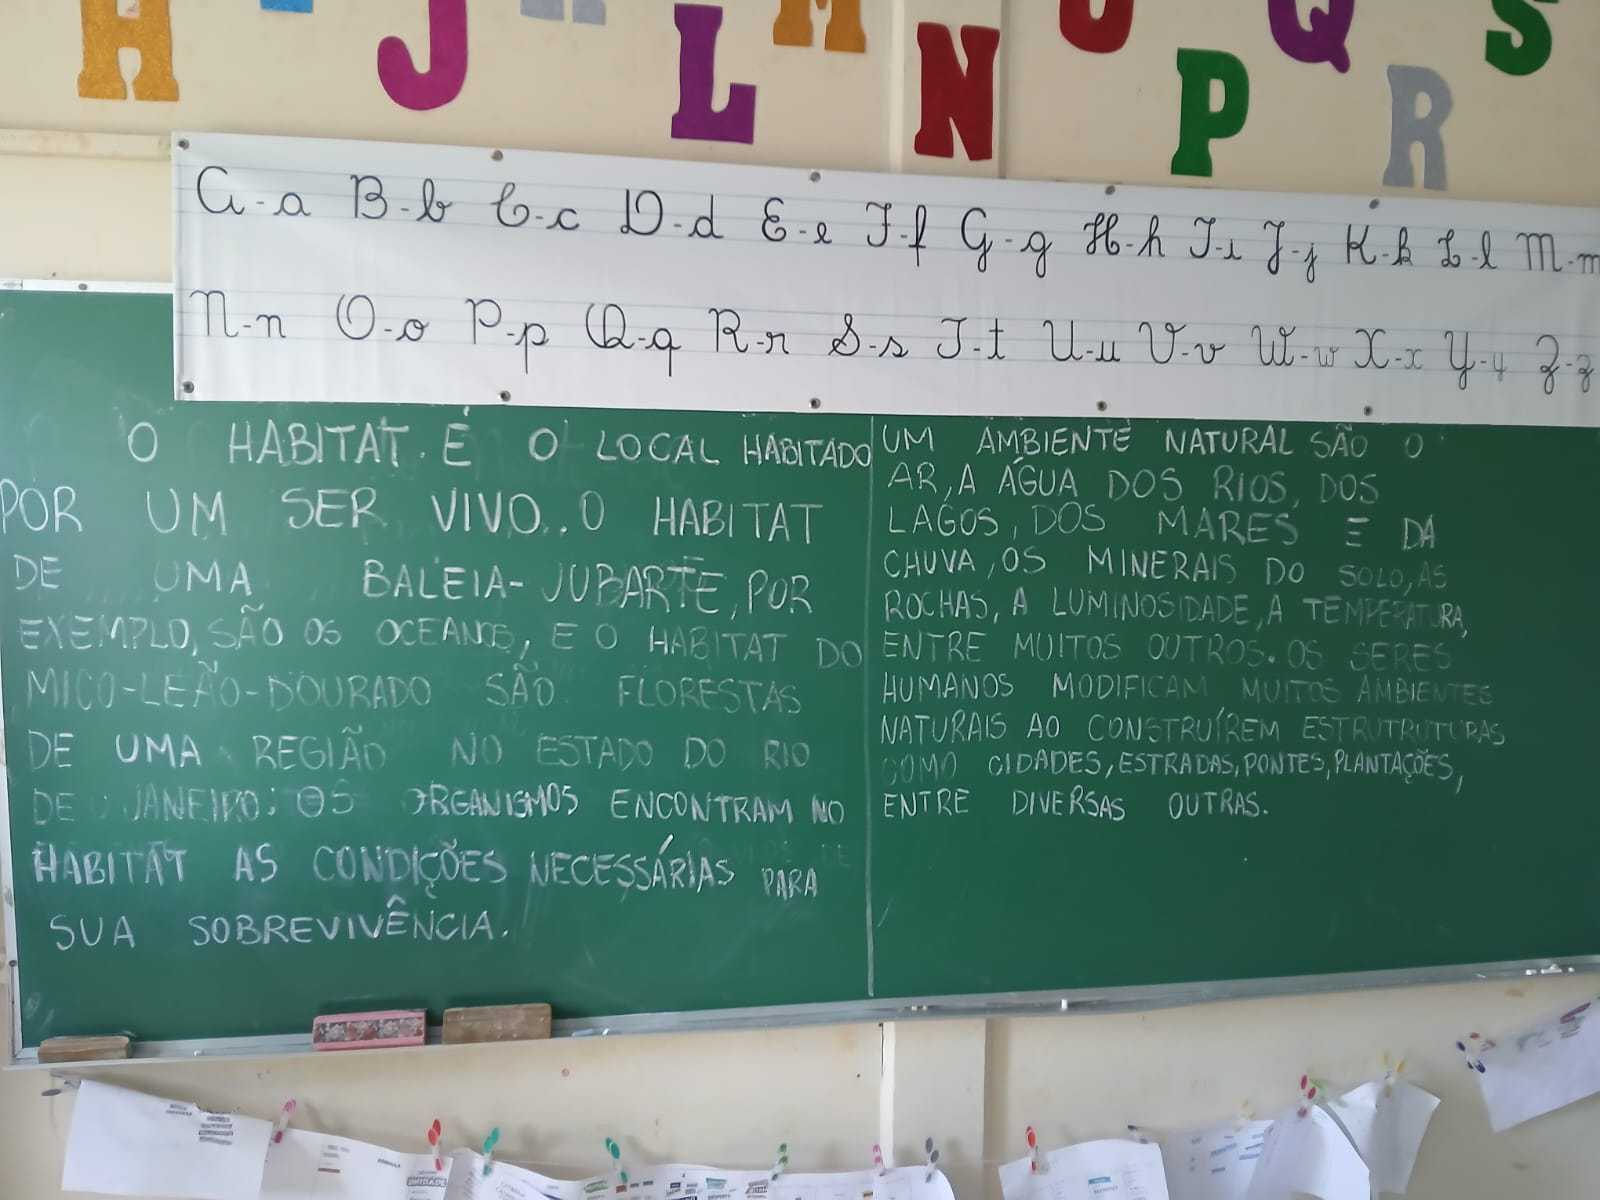 H J L M N O P Q R S
A-a B-b C-c D-d E-e F-f G-g H-h I-i J-j K-k L-l M-m
N-n O-o P-p Q-q R-r S-s T-t U-u V-v W-w X-x Y-y Z-z
O HABITAT É O LOCAL HABITADO
POR UM SER VIVO. O HABITAT
DE UMA BALEIA-JUBARTE, POR
EXEMPLO, SÃO OS OCEANOS, E O HABITAT DO
MICO-LEÃO-DOURADO SÃO FLORESTAS
DE UMA REGIÃO NO ESTADO DO RIO
DE JANEIRO. OS ORGANISMOS ENCONTRAM NO
HABITAT AS CONDIÇÕES NECESSÁRIAS PARA
SUA SOBREVIVÊNCIA.
UM AMBIENTE NATURAL SÃO O
AR, A ÁGUA DOS RIOS, DOS
LAGOS, DOS MARES E DA
CHUVA, OS MINERAIS DO SOLO, AS
ROCHAS, A LUMINOSIDADE, A TEMPERATURA,
ENTRE MUITOS OUTROS. OS SERES
HUMANOS MODIFICAM MUITOS AMBIENTES
NATURAIS AO CONSTRUÍREM ESTRUTRUTURAS
COMO CIDADES, ESTRADAS, PONTES, PLANTAÇÕES,
ENTRE DIVERSAS OUTRAS.